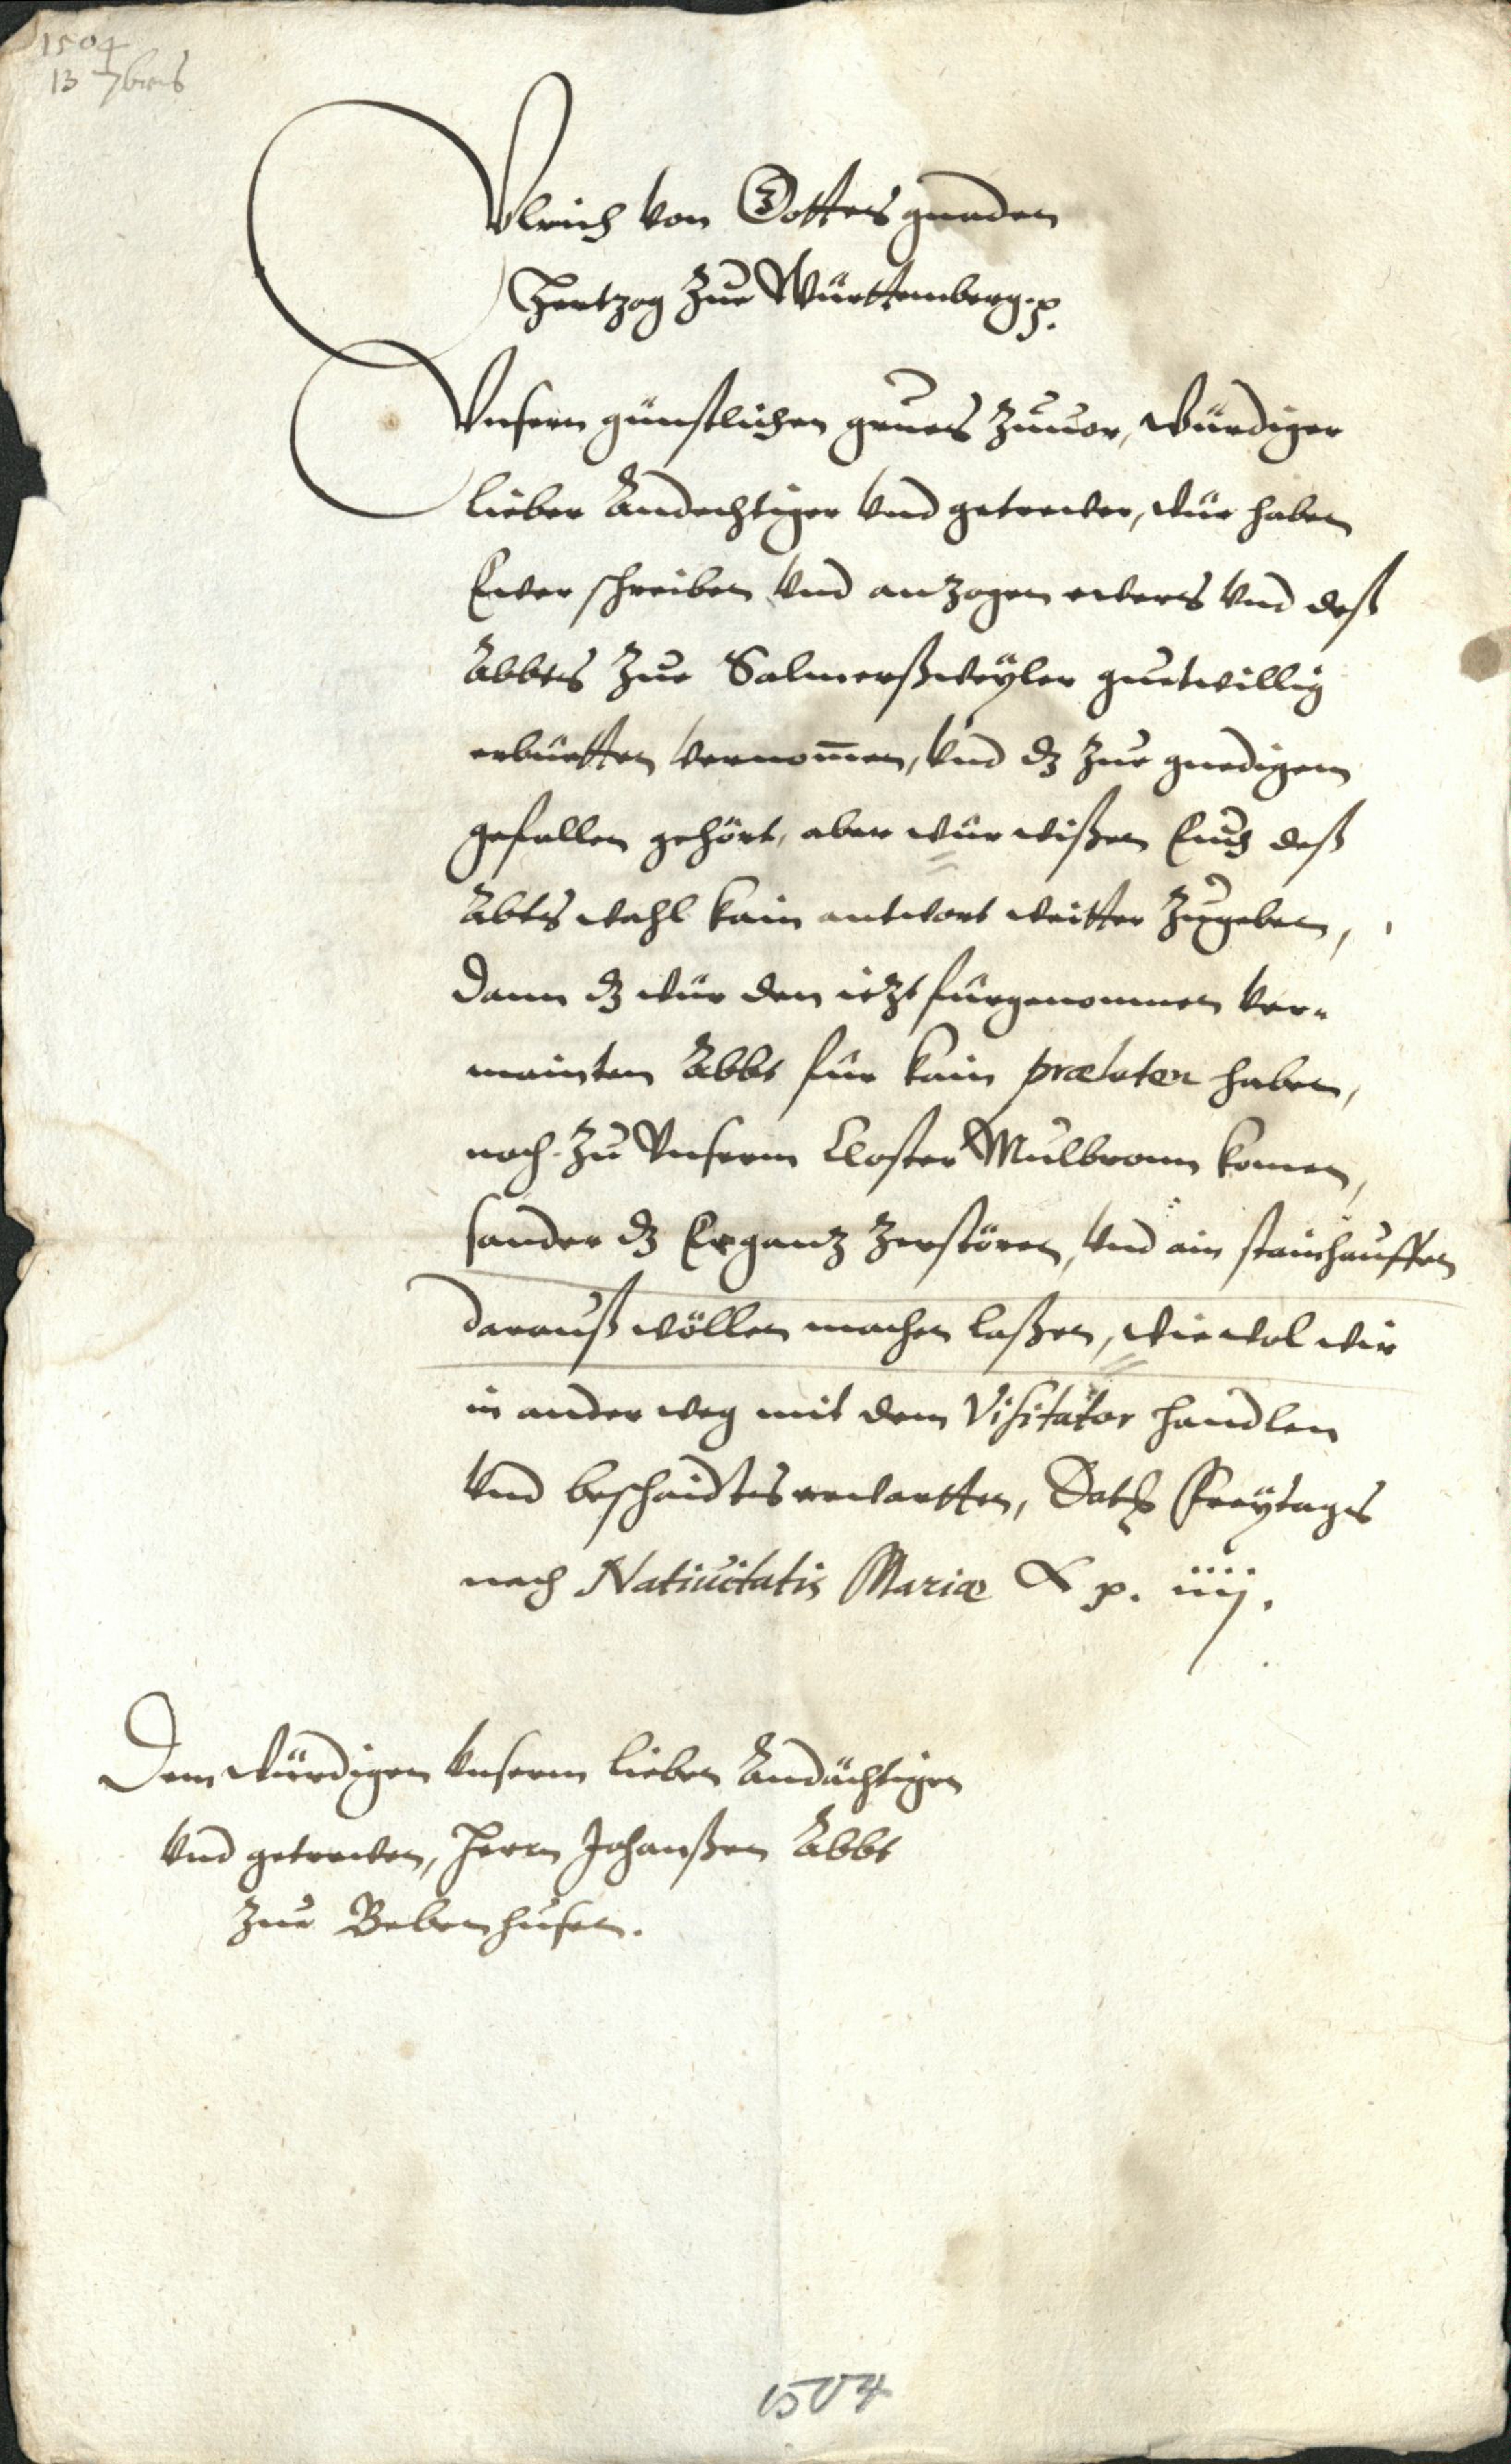 1504
13 7bris
Vlrich von Gottes gnaden
Hertzog Zue Württemberg. p.
Vnsern günstlichen grues Zuuor, würdiger
lieber Andechtiger vnd getrewer, wür haben
Ewer schreiben vnd anzogen ewers vnd deß
Abbts Zue Salmerßweyler guetwillig
erbüetten vernom̄en, vnd dz Zue gnedigem
gefallen gehört, aber wür wißen Euch deß
Abts wahl kain antwort weitter Zugeben,
Dann dz wür den iezt fürgenommen ver-
mainten Abbt für kain prælaten haben,
noch Zu Vnserm Closter Mulbronn komen,
sonder dz Er ganz Zerstören, vnd ain stainhauffen
darauß wöllen machen laßen, wiewol wir
in ander weg mit dem Visitator handlen
vnd beschaidts erwartten, Dat. Freytags
nach Natiuitatis Mariæ p. iiij.
Dem würdigen vnserm lieben Andächtigen
vnd getrewen, Herrn Johanßen Abbt
Zue Bebenhusen.
1504